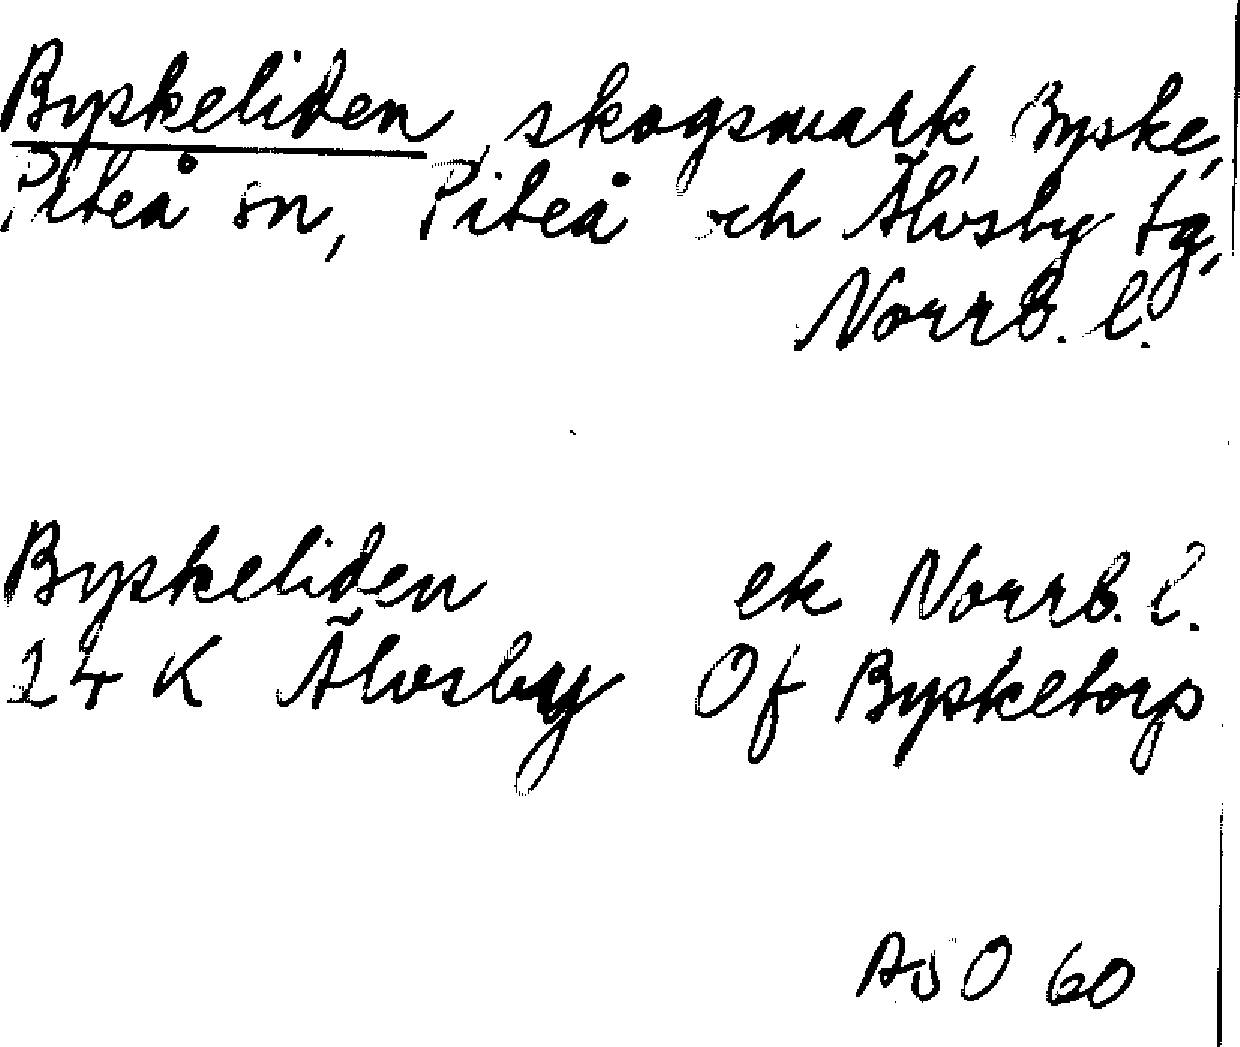 Byskeliden, skogsmark, Byske,
Piteå sn, Piteå och Älvsby tg,
Norrb. l.
Byskeliden ek Norrb. l.
24 K Älvsby Of Bysketorp
60